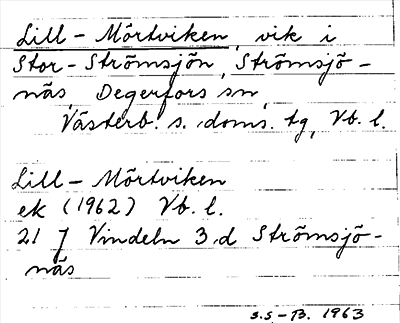 Lill-Mörtviken, vik i
Stor-Strömsjön, Strömsjö-
näs, Degerfors sn,
Västerb. s. doms. tg, Vb. l.
Lill-Mörtviken
ek (1962) Vb. l.
21 J Vindeln 3 d Strömsjö-
näs
S.S-B. 1963